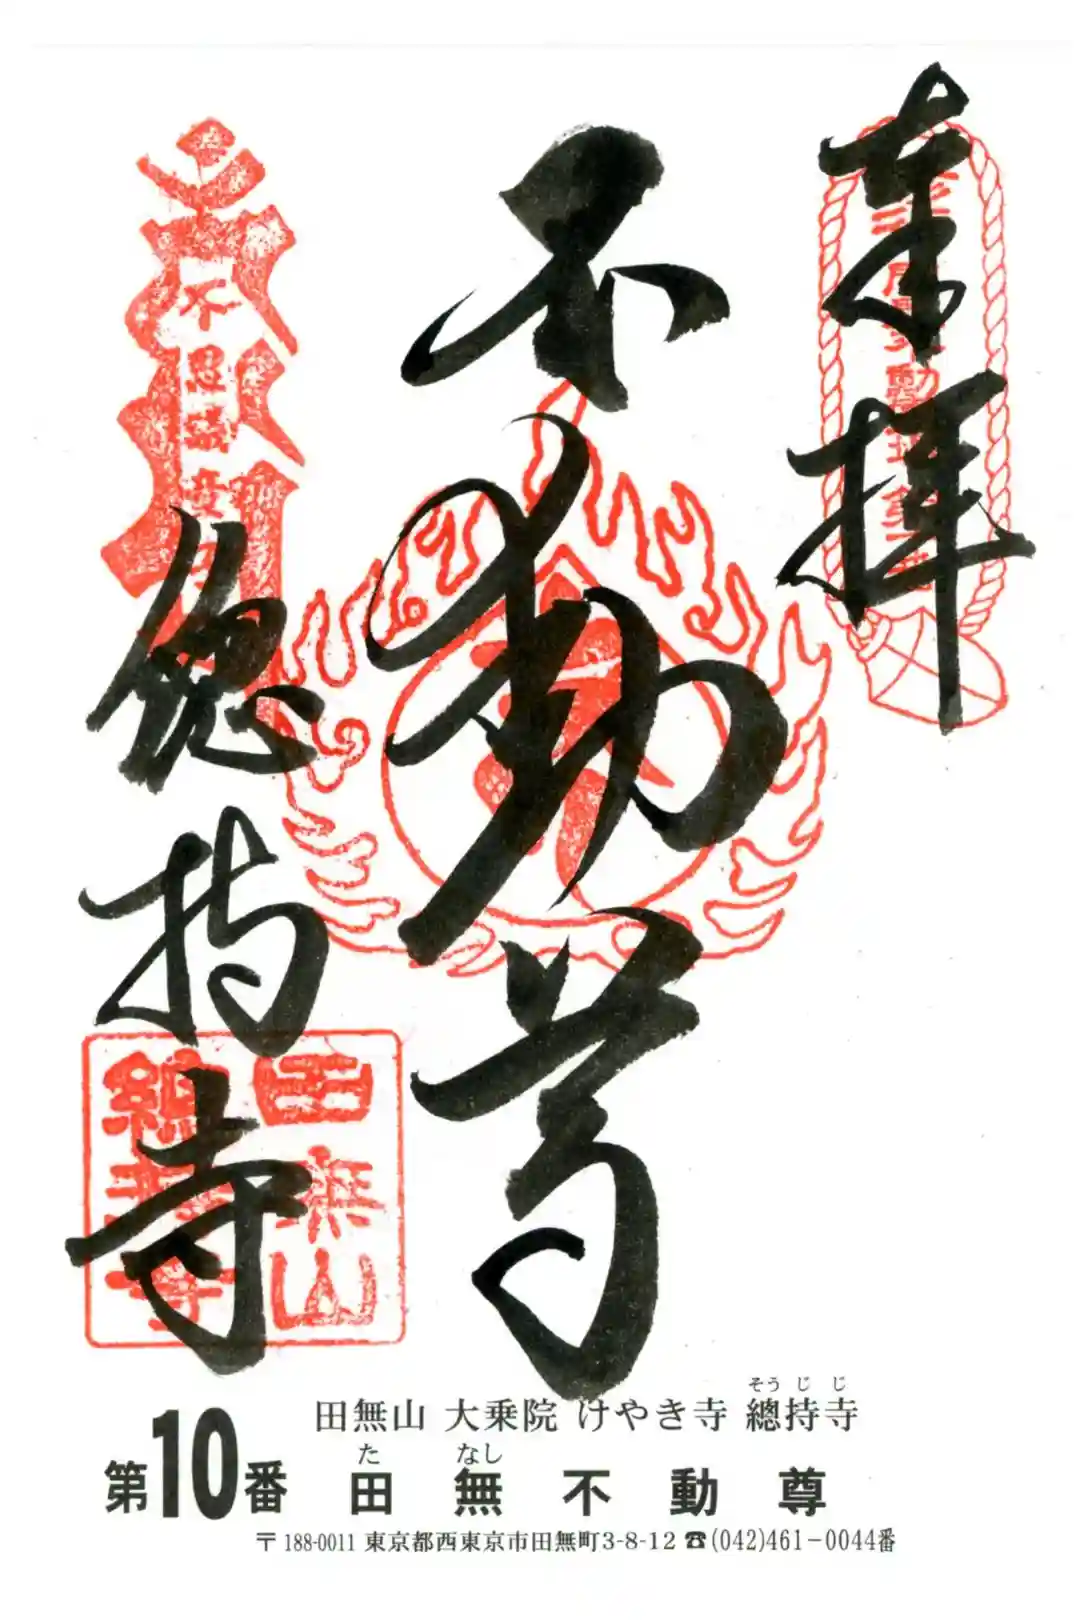 奉拝
不動尊
總持寺
田無山
總持寺
そうじじ
田無山 大乗院 けやき寺 總持寺
た なし
第10番 田無不動尊
〒188-0011 東京都西東京市田無町3-8-12 ☎(042)461-0044番